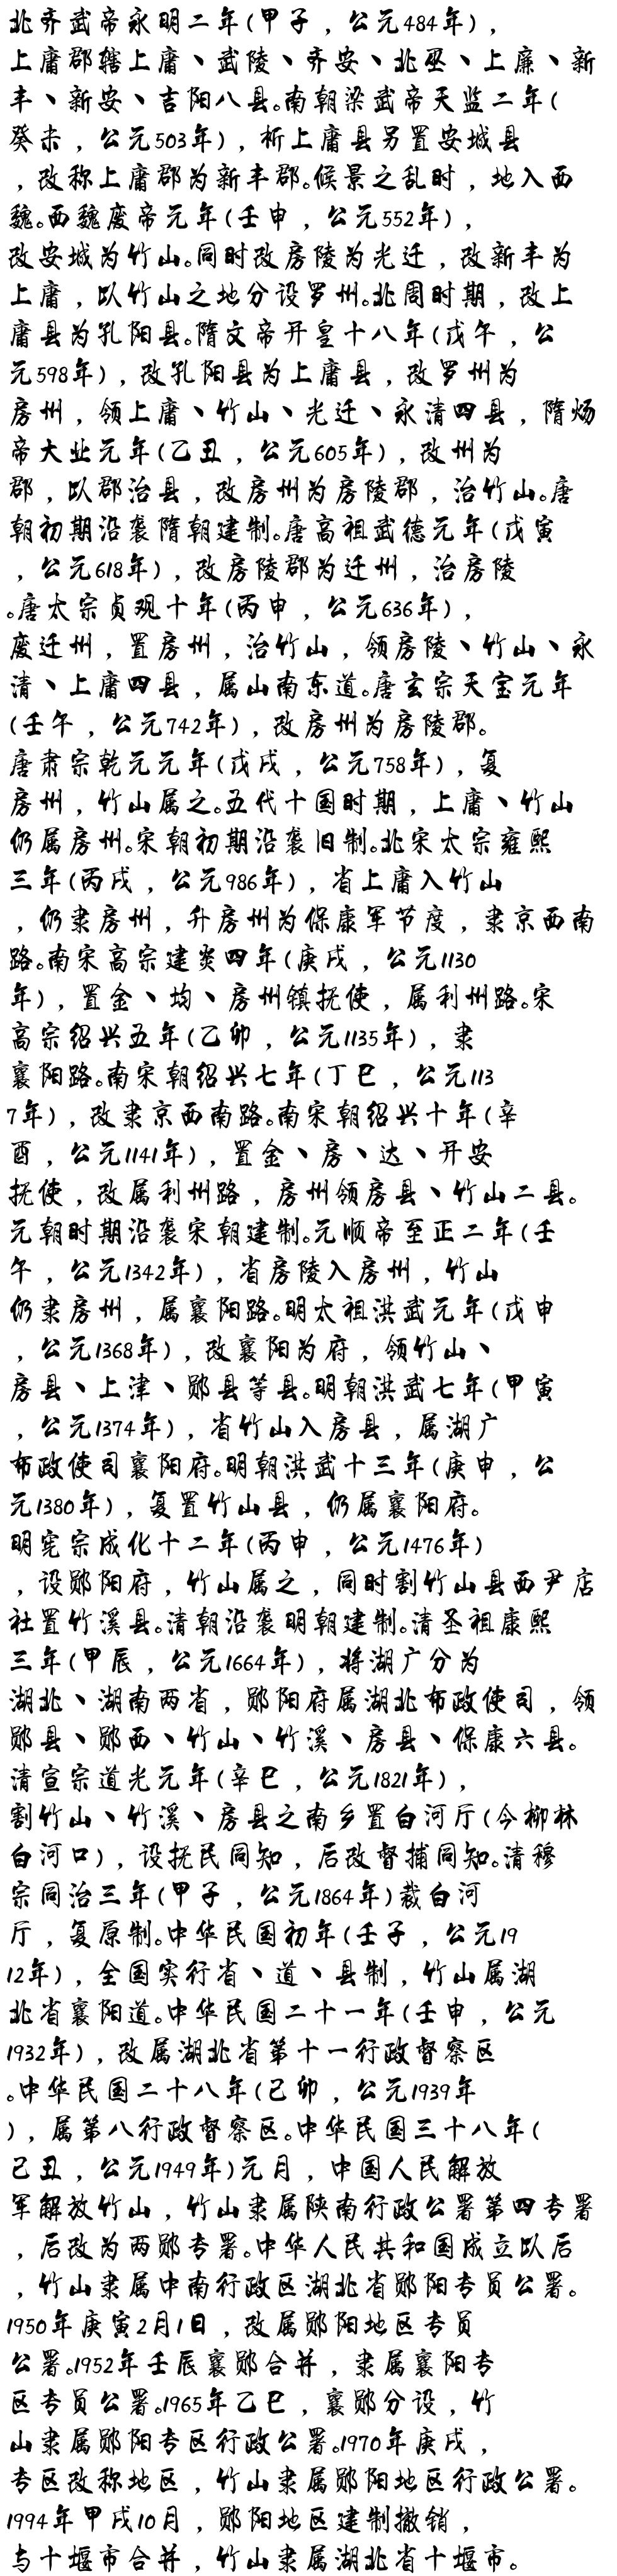 北齐武帝永明二年(甲子，公元484年)，
上庸郡辖上庸、武陵、齐安、北巫、上廉、新
丰、新安、吉阳八县。南朝梁武帝天监二年(
癸未，公元503年)，析上庸县另置安城县
，改称上庸郡为新丰郡。候景之乱时，地入西
魏。西魏废帝元年(壬申，公元552年)，
改安城为竹山。同时改房陵为光迁，改新丰为
上庸，以竹山之地分设罗州。北周时期，改上
庸县为孔阳县。隋文帝开皇十八年(戊午，公
元598年)，改孔阳县为上庸县，改罗州为
房州，领上庸、竹山、光迁、永清四县，隋炀
帝大业元年(乙丑，公元605年)，改州为
郡，以郡治县，改房州为房陵郡，治竹山。唐
朝初期沿袭隋朝建制。唐高祖武德元年(戊寅
，公元618年)，改房陵郡为迁州，治房陵
。唐太宗贞观十年(丙申，公元636年)，
废迁州，置房州，治竹山，领房陵、竹山、永
清、上庸四县，属山南东道。唐玄宗天宝元年
(壬午，公元742年)，改房州为房陵郡。
唐肃宗乾元元年(戊戌，公元758年)，复
房州，竹山属之。五代十国时期，上庸、竹山
仍属房州。宋朝初期沿袭旧制。北宋太宗雍熙
三年(丙戌，公元986年)，省上庸入竹山
，仍隶房州，升房州为保康军节度，隶京西南
路。南宋高宗建炎四年(庚戌，公元1130
年)，置金、均、房州镇抚使，属利州路。宋
高宗绍兴五年(乙卯，公元1135年)，隶
襄阳路。南宋朝绍兴七年(丁巳，公元113
7年)，改隶京西南路。南宋朝绍兴十年(辛
酉，公元1141年)，置金、房、达、开安
抚使，改属利州路，房州领房县、竹山二县。
元朝时期沿袭宋朝建制。元顺帝至正二年(壬
午，公元1342年)，省房陵入房州，竹山
仍隶房州，属襄阳路。明太祖洪武元年(戊申
，公元1368年)，改襄阳为府，领竹山、
房县、上津、郧县等县。明朝洪武七年(甲寅
，公元1374年)，省竹山入房县，属湖广
布政使司襄阳府。明朝洪武十三年(庚申，公
元1380年)，复置竹山县，仍属襄阳府。
明宪宗成化十二年(丙申，公元1476年)
，设郧阳府，竹山属之，同时割竹山县西尹店
社置竹溪县。清朝沿袭明朝建制。清圣祖康熙
三年(甲辰，公元1664年)，将湖广分为
湖北、湖南两省，郧阳府属湖北布政使司，领
郧县、郧西、竹山、竹溪、房县、保康六县。
清宣宗道光元年(辛巳，公元1821年)，
割竹山、竹溪、房县之南乡置白河厅(今柳林
白河口)，设抚民同知，后改督捕同知。清穆
宗同治三年(甲子，公元1864年)裁白河
厅，复原制。中华民国初年(壬子，公元19
12年)，全国实行省、道、县制，竹山属湖
北省襄阳道。中华民国二十一年(壬申，公元
1932年)，改属湖北省第十一行政督察区
。中华民国二十八年(己卯，公元1939年
)，属第八行政督察区。中华民国三十八年(
己丑，公元1949年)元月，中国人民解放
军解放竹山，竹山隶属陕南行政公署第四专署
，后改为两郧专署。中华人民共和国成立以后
，竹山隶属中南行政区湖北省郧阳专员公署。
1950年庚寅2月1日，改属郧阳地区专员
公署。1952年壬辰襄郧合并，隶属襄阳专
区专员公署。1965年乙巳，襄郧分设，竹
山隶属郧阳专区行政公署。1970年庚戌，
专区改称地区，竹山隶属郧阳地区行政公署。
1994年甲戌10月，郧阳地区建制撤销，
与十堰市合并，竹山隶属湖北省十堰市。